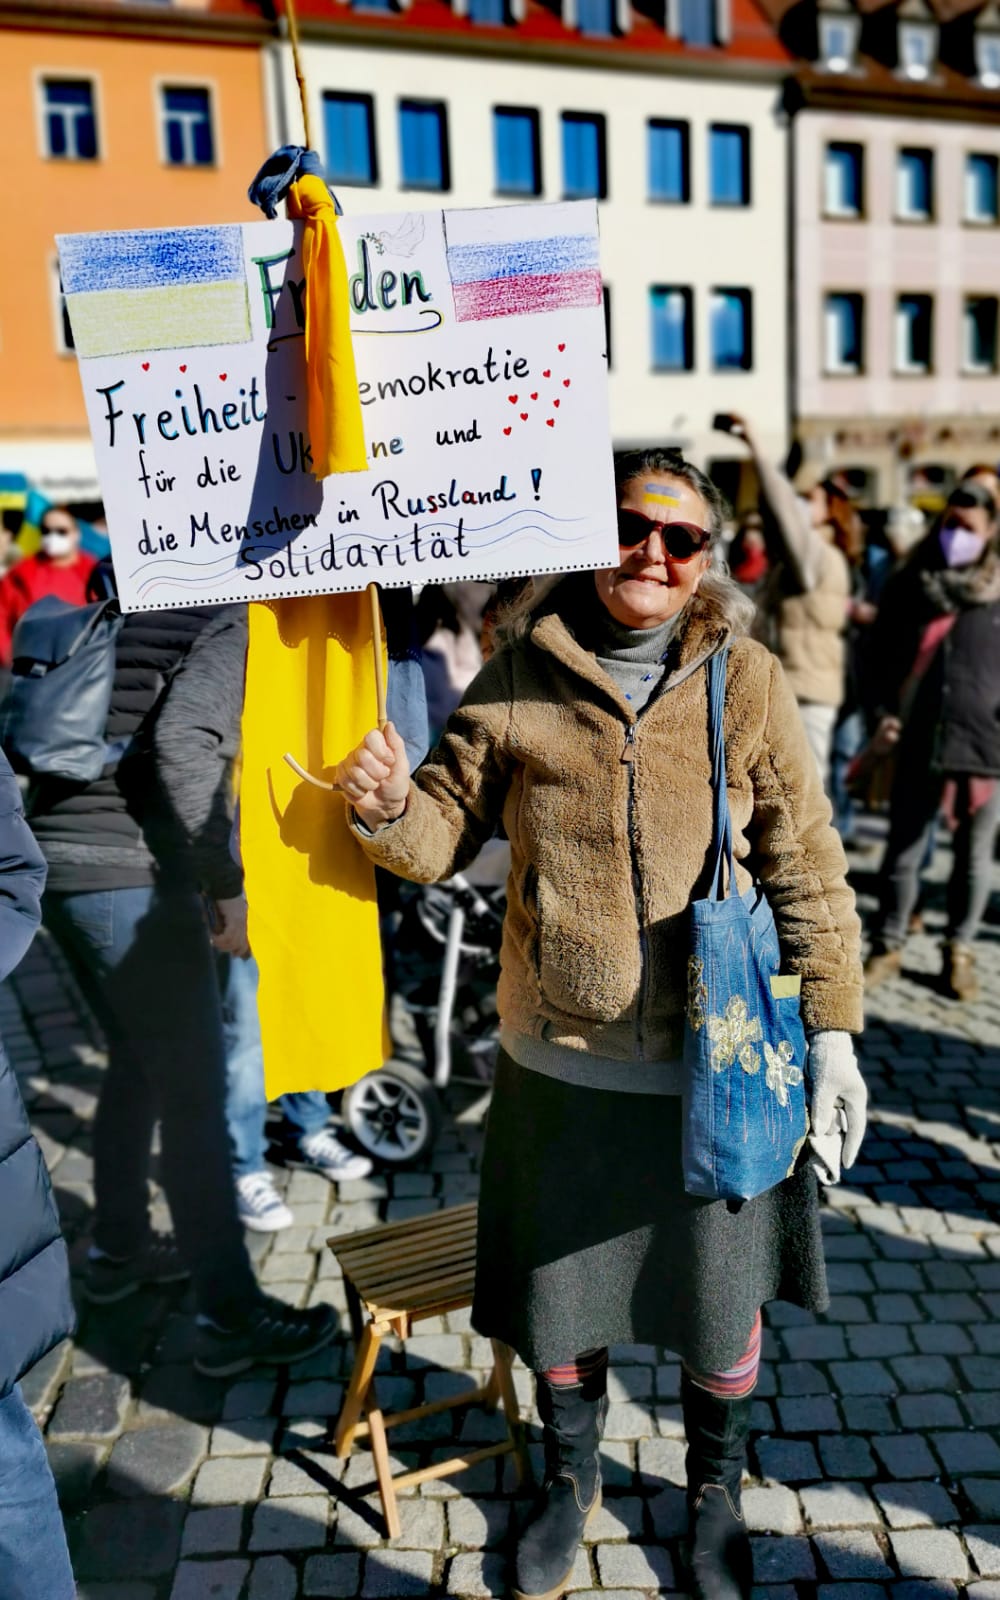 Frieden
Freiheit - Demokratie
für die Ukraine und
die Menschen in Russland !
Solidarität